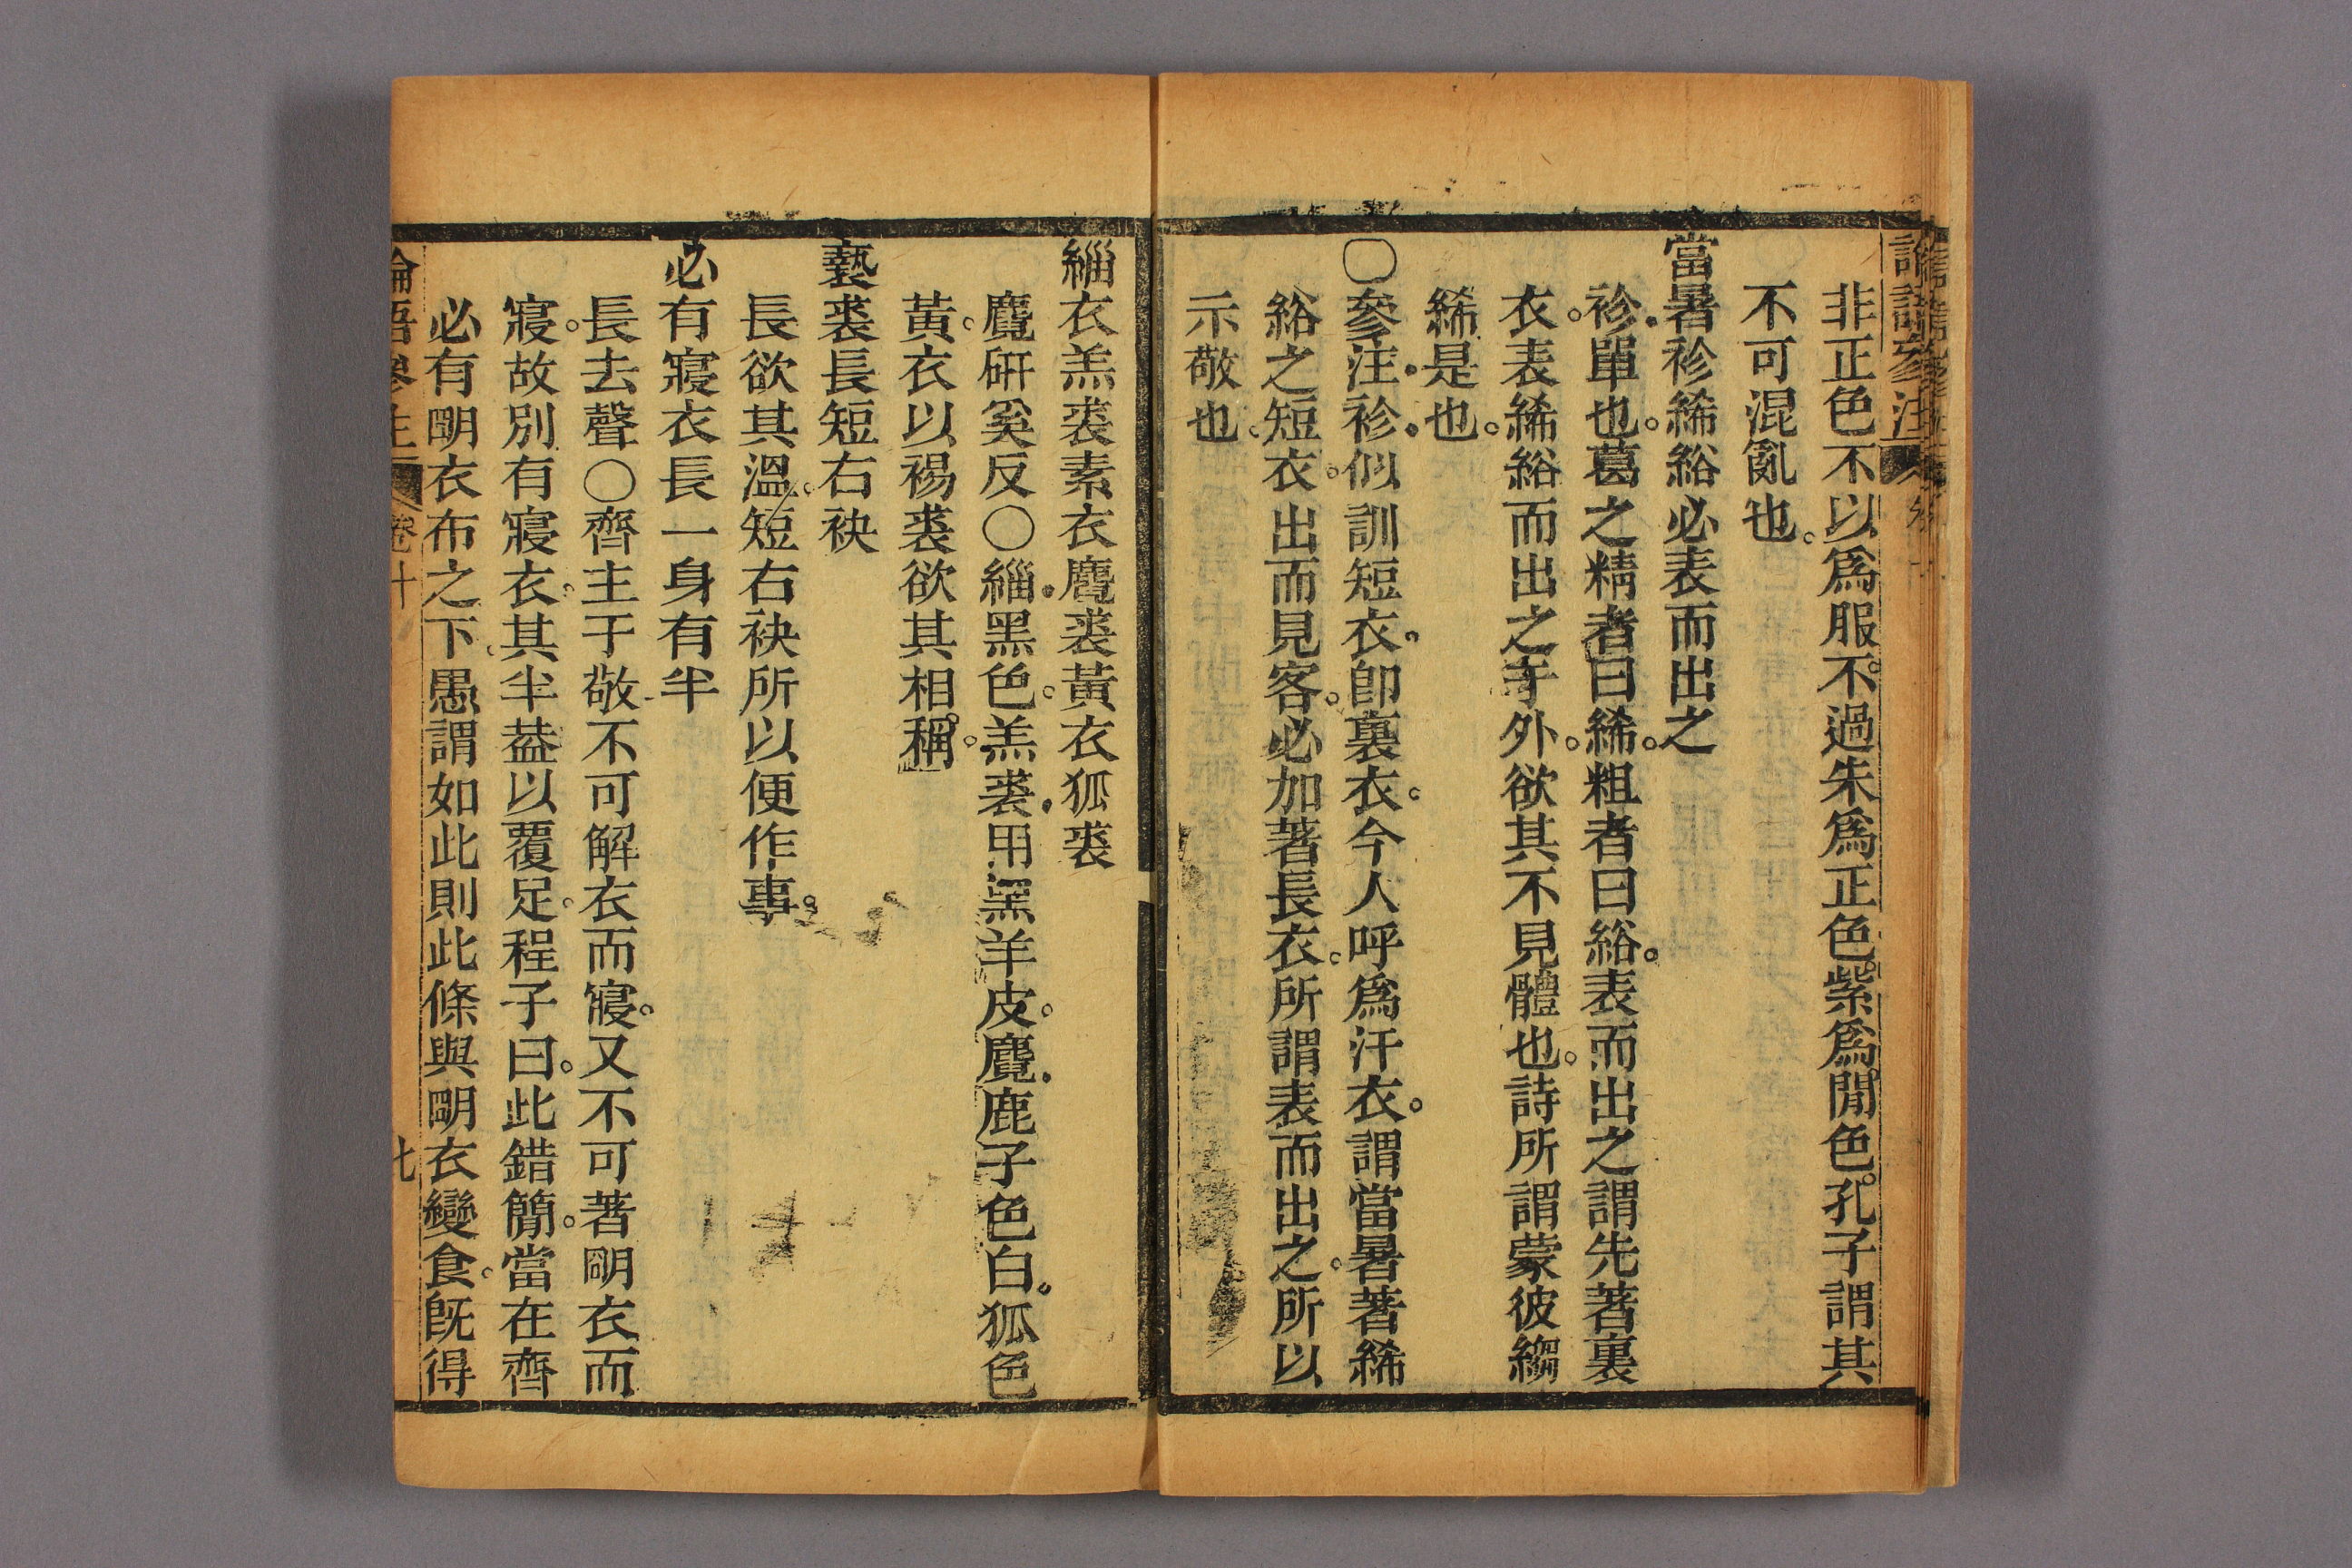 非正色不以爲服。不過朱爲正色。紫爲閒色。孔子謂其
不可混亂也。
當暑袗絺綌必表而出之
袗。單也。葛之精者曰絺。粗者曰綌。表而出之謂先著裏
衣。表絺綌而出之于外。欲其不見體也。詩所謂蒙彼縐
絺是也。
〇參注。袗。似訓短衣。卽裏衣。今人呼爲汗衣。謂當暑著絺
綌之短衣。出而見客。必加著長衣。所謂表而出之。所以
示敬也。
緇衣羔裘素衣麑裘黃衣狐裘
麑硏奚反〇緇。黑色。羔裘。用黑羊皮。麑。鹿子色白。狐色
黃。衣以裼裘欲其相稱。
褻裘長短右袂
長欲其溫。短右袂所以便作事。
必有寢衣長一身有半
長去聲〇齊主于敬不可解衣而寢。又不可著明衣而
寢。故別有寢衣。其半葢以覆足。程子曰。此錯簡。當在齊
必有明衣布之下。愚謂如此則此條與明衣變食。旣得
論語參注 卷十 七